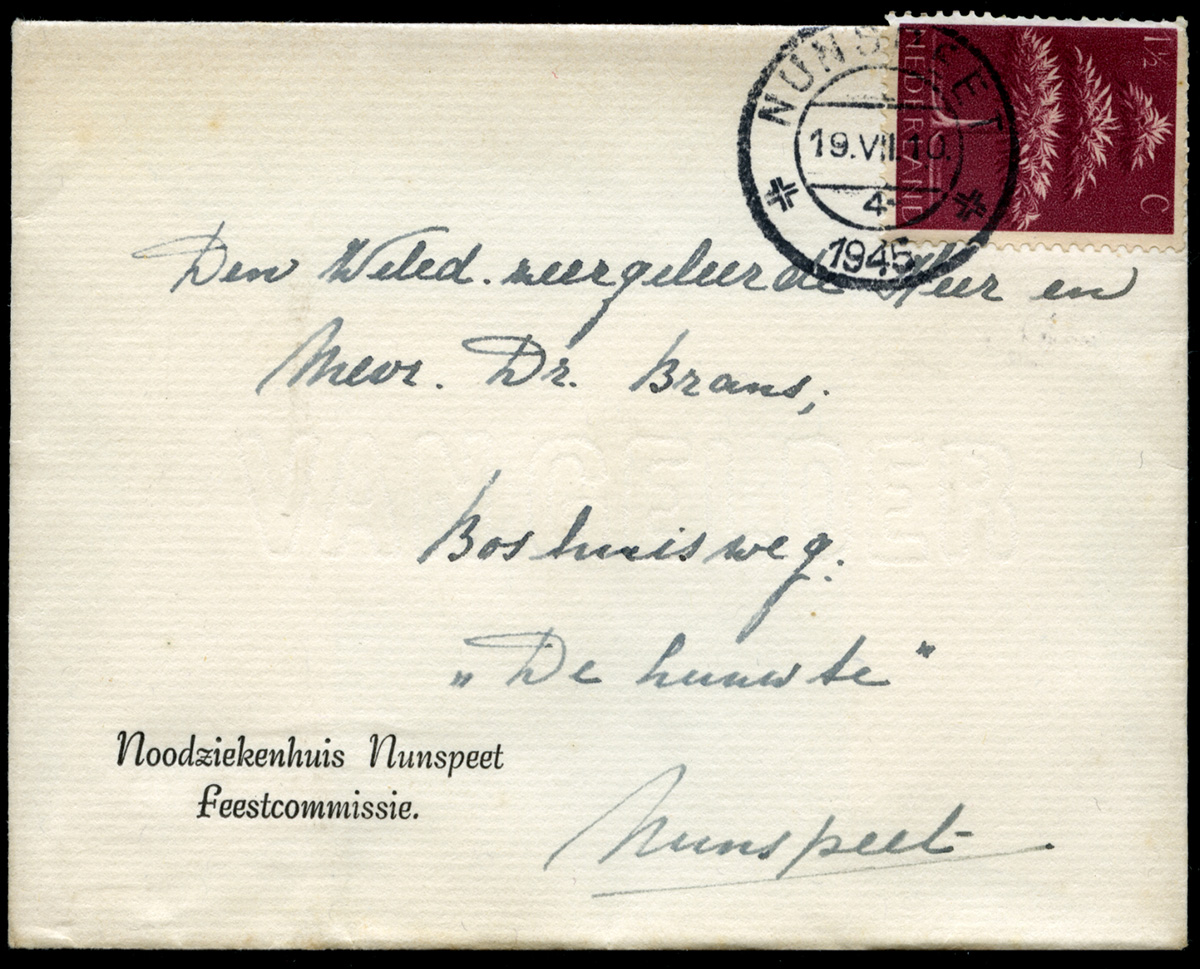 NUNSPEET
19.VII.10.
4-
1945
NEDERLAND
1½ C
Den Weled. zeergeleerde Heer en
Mevr. Dr. Brans;
VAN GELDER
Boshuisweg.
„De
Nunspeet
Noodziekenhuis Nunspeet
Feestcommissie.